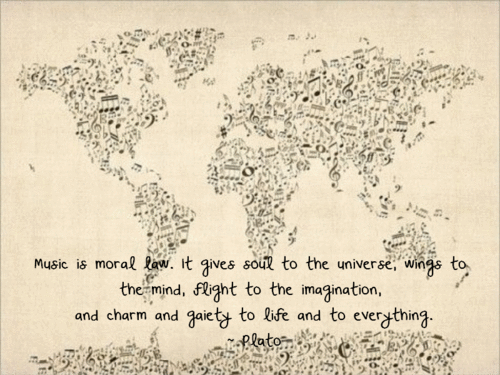 Music is moral law. It gives soul to the universe, wings to
the mind, flight to the imagination,
and charm and gaiety to life and to everything.
~ Plato